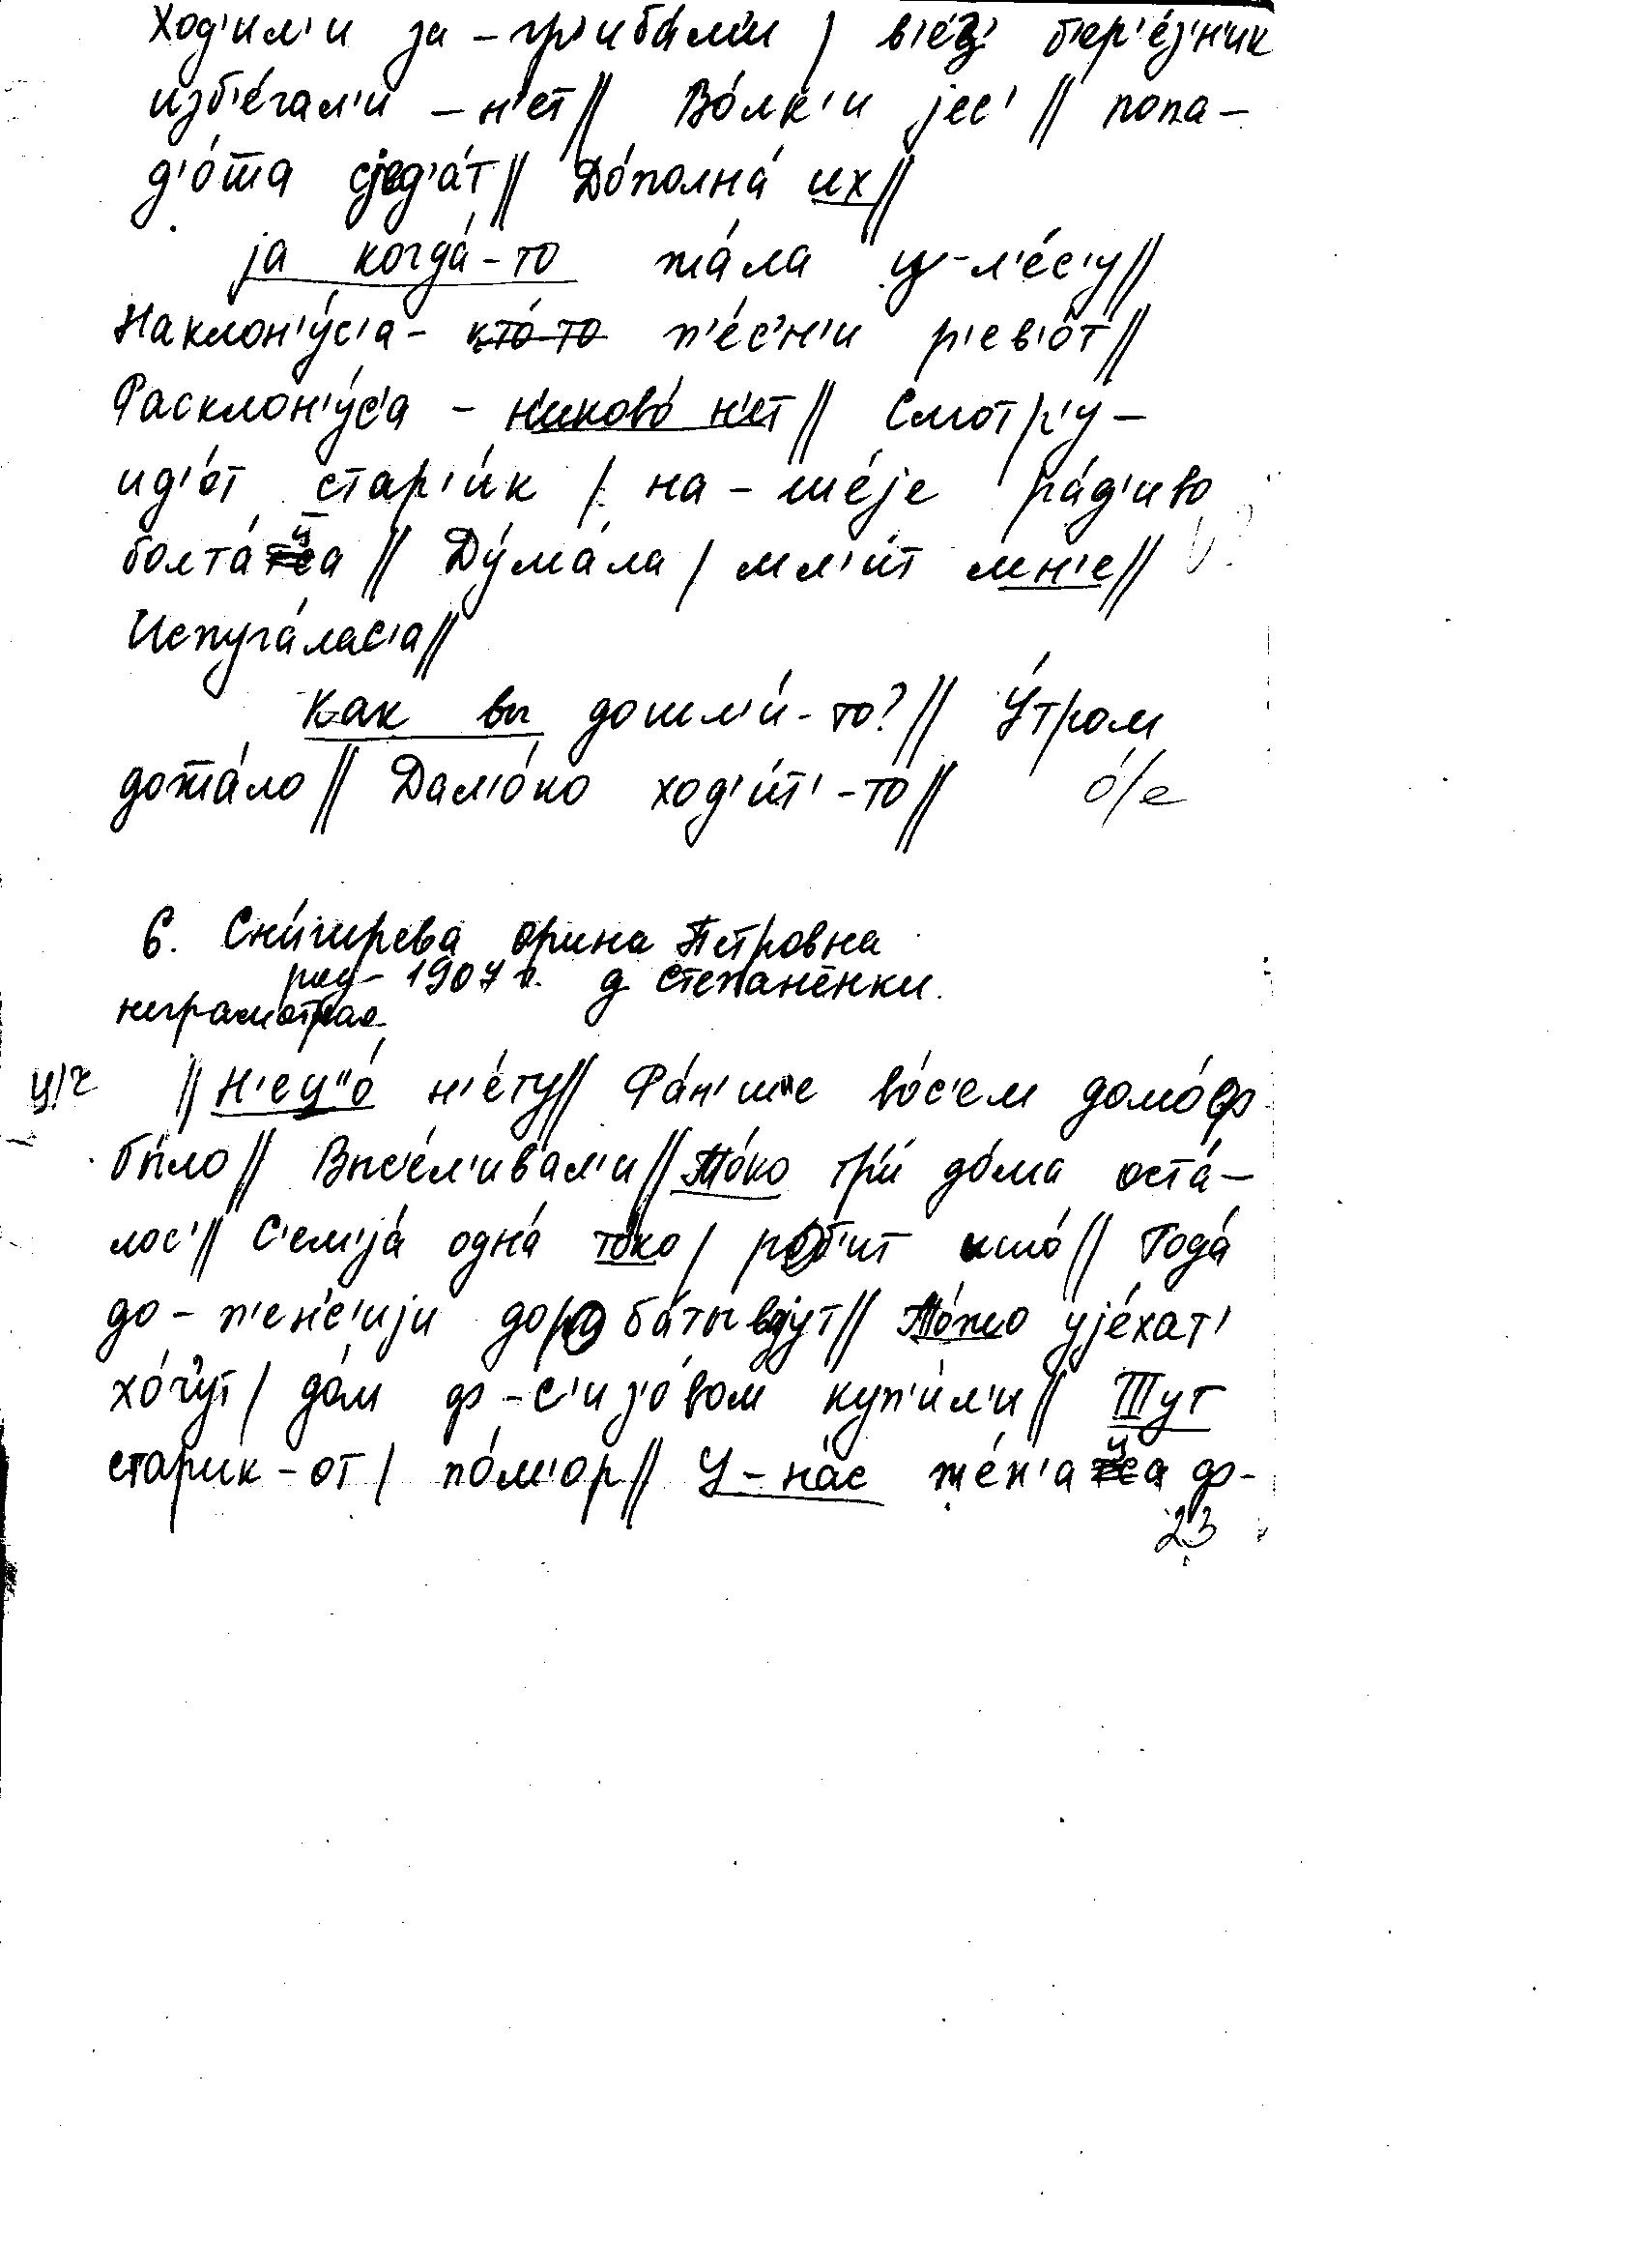 ход'ил'и за-гр'иба́м'и / в'е́з' б'ер'е́з'н'ик
изб'е́гал'и – н'ет // Во́лк'и јес' // попа-
д'о́ш съјед'а́т // До́полна́ их //
ја когда́-то жа́ла у-л'е́с'у //
Наклон'у́с'а - кто́-то п'е́с'н'и р'ев'о́т //
Расклон'у́с'а – н'иково́ н'ет // Смотр'у́ –
ид'о́т стар'и́к / на-ше́је ра́д'иво
болта́ца // Ду́ма́ла / мл'и́т мн'е //
Испуга́лас'а //
Как вы дошл'и́-то? // У́тром
дожа́ло // Дал'о́ко ход'и́т'-то // о́/е
6. Снигирева Орина Петровна
род- 1907 г. д Степанёнки.
неграмотная
ц/ч // Н'ец"о́ н'е́ту // Ра́н'ше во́с'ем домо́ф
бы́ло // Высе́л'ивал'и // То́ко тр'и́ до́ма оста́-
лос' // С'ем'ја́ одна́ то́ко / ро́б'ит ишо́ // Тода́
до-п'ен'с'ији дораба́тывајут // То́жо ује́хат'
хо́ч'ут / до́м ф-с'из'о́вом куп'и́л'и // Тут
старик-от / по́м'ор // У-на́с же́н'аца ф-
23